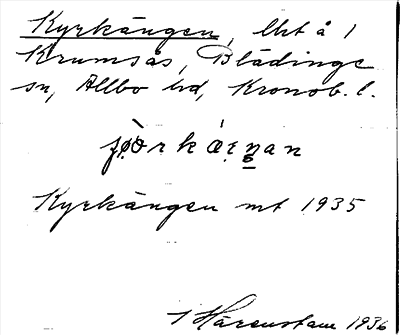 Kyrkängen, lht å 1
Krumsås, Blädinge
sn, Allbo hd, Kronob. l.
Kyrkängen mt 1935
I Härenstam 1936